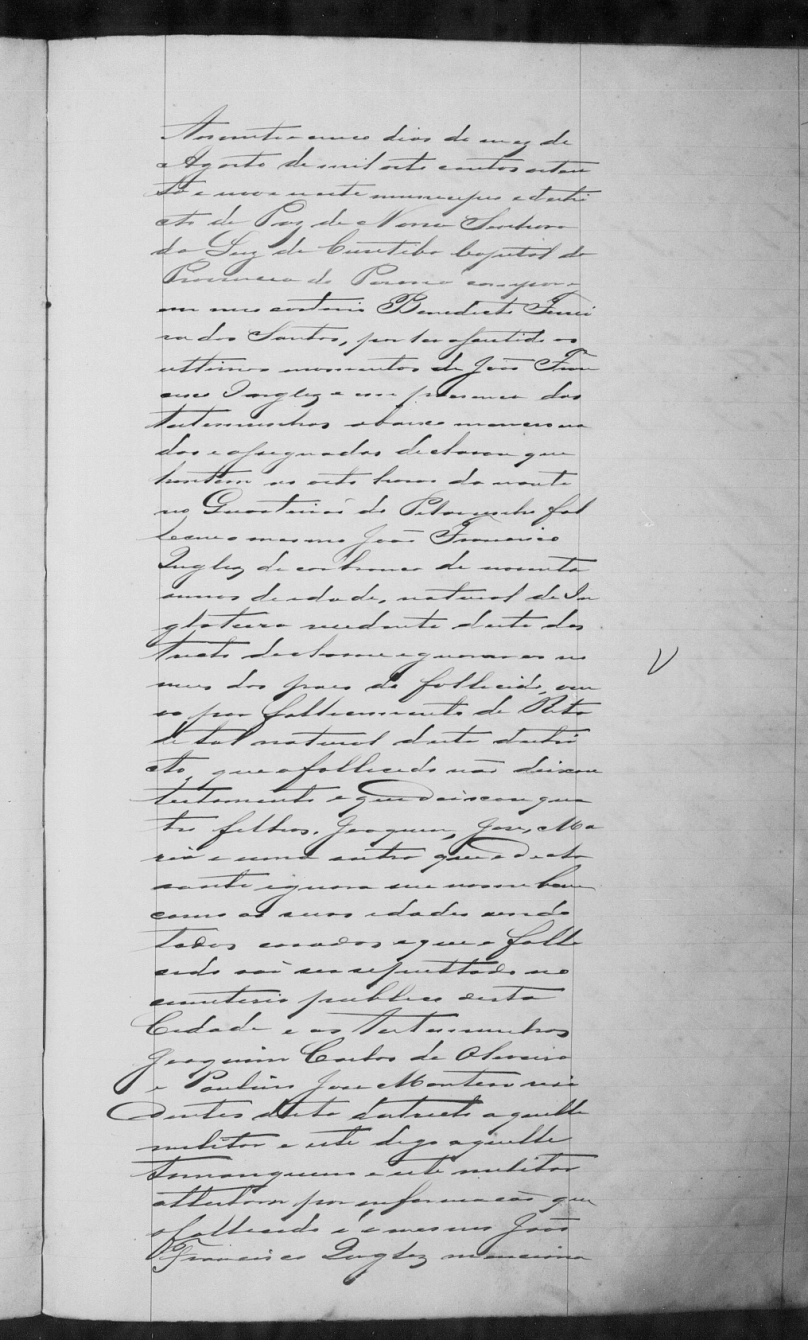 Aos vinte e cinco dias do mez de
Agosto de mil oito centos oiten
ta e nove neste municipio e distri
cto de Paz de Nossa Senhora
da Luz de Curitiba Capital da
Provincia do Paraná compare
em meu cartorio Benedicto Ferrei
ra dos Santos, por ter assistido os
ultimos momentos de João Fran
cisco Inglez e em presença das
testemunhas abaixo menciona
das e assignadas declarou que
hontem as oito horas da noute
no Quarteirão do Pilarzinho fal
leceu o mesmo João Francisco
Inglez de cor branca de noventa
annos de edade, natural de In
glaterra residente deste dis
tricto declarou ignorar os no
mes dos paes do fallecido, viu
vo por fallecimento de Rita
de tal natural deste distri
cto, que o fallecido não deixou
testamento e que deixou qua
tro filhos, Joaquim, José, Ma
ria e uma outra que o decla
rante ignora seu nome bem
como as suas edades sendo
todos casados e que o falle
cido vai ser sepultado no
cemiterio publico desta
Cidade e as testemunhas
Joaquim Carlos de Oliveira
e Paulino José Monteiro resi
dentes deste districto aquelle
militar e este digo aquelle
tamanqueiro e este militar
attestaram por informação que
o fallecido é o mesmo João
Francisco Inglez menciona